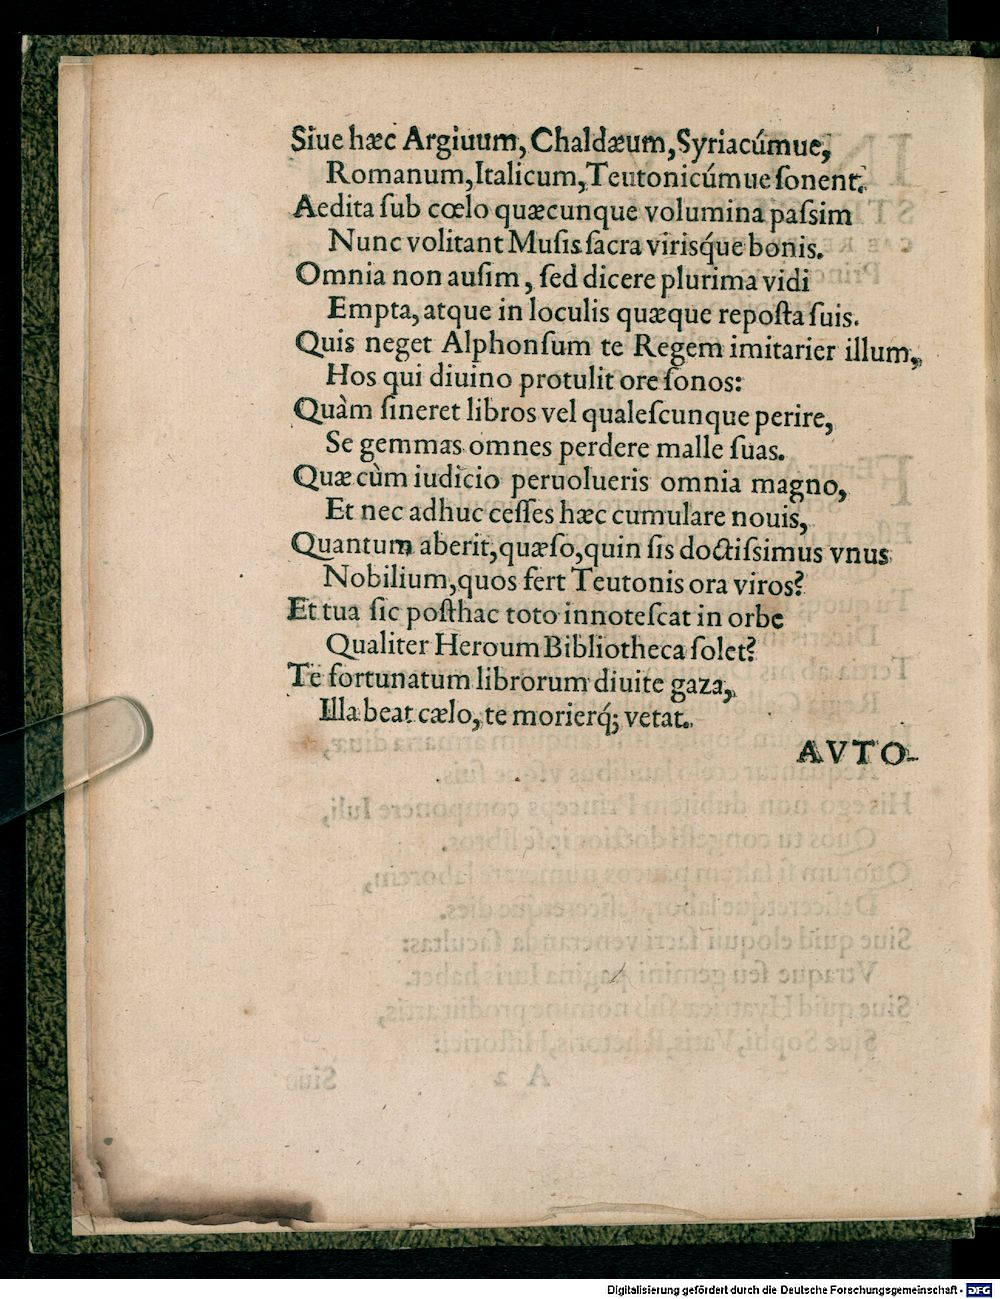 Siue hæc Argiuum, Chaldæum, Syriacúmue,
Romanum, Italicum, Teutonicúmue ſonent.
Aedita ſub cœlo quæcunque volumina paſsim
Nunc volitant Muſis ſacra virisq́ue bonis.
Omnia non auſim, ſed dicere plurima vidi
Empta, atque in loculis quæque repoſta ſuis.
Quis neget Alphonſum te Regem imitarier illum,
Hos qui diuino protulit ore ſonos:
Quàm ſineret libros vel qualeſcunque perire,
Se gemmas omnes perdere malle ſuas.
Quæ cùm iudicio peruolueris omnia magno,
Et nec adhuc ceſſes hæc cumulare nouis,
Quantum aberit, quæſo, quin ſis doctiſsimus vnus
Nobilium, quos fert Teutonis ora viros?
Et tua ſic poſthac toto innoteſcat in orbe
Qualiter Heroum Bibliotheca ſolet?
Te fortunatum librorum diuite gaza,
Illa beat cælo, te morierq́; vetat.
AVTO-
Digitalisierung gefördert durch die Deutsche Forschungsgemeinschaft - DFG